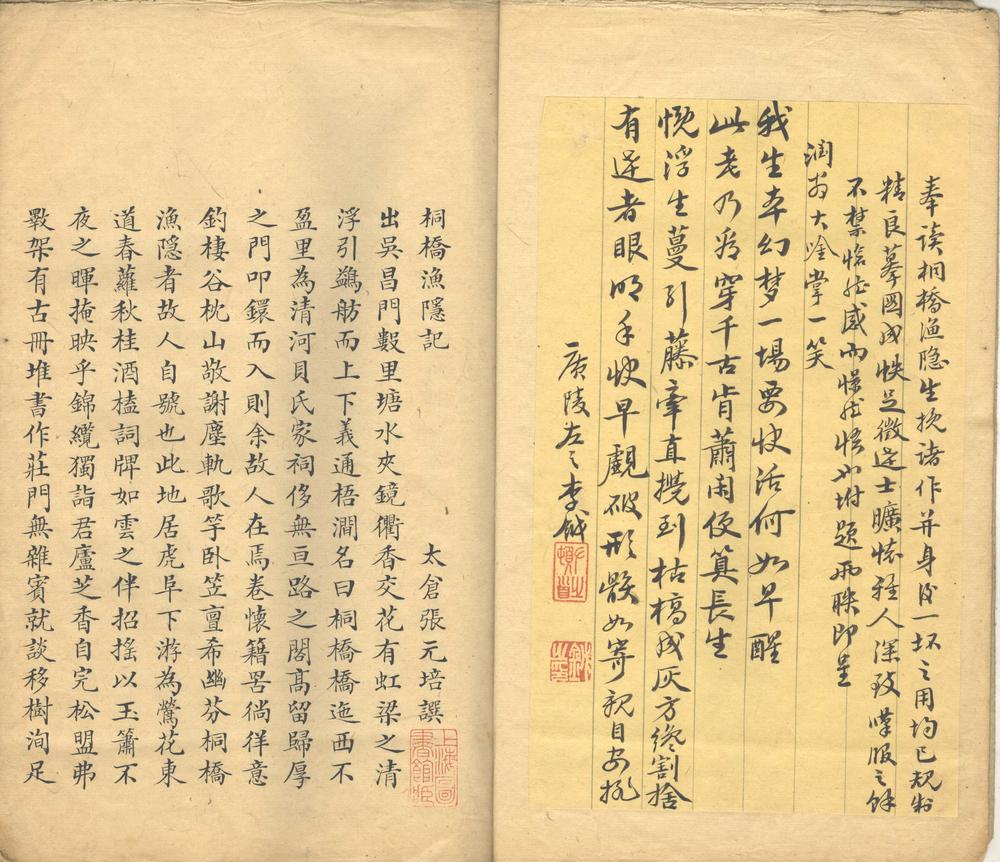 奉读桐橋渔隐生挽诸作并身後一坏之用均已规制
精良摹圖成帙足徵逹士曠懷雅人深致嘆服之餘
不禁慨然感而憬然悟也坿題兩联即呈
润翁大唫掌一笑
我生本幻梦一場要快活何如早醒
此老乃为穿千古肯蕭闲便算長生
慨浮生蔓引藤牽直攪到枯槁成灰方纔割捨
有逹者眼明手快早觀破形骸如寄親自安排
廣陵左之李鉞
頓首
桐橋漁隱記
太倉張元培譔
上海圖書館藏
出吳昌門數里塘水夾鏡衢香交花有虹梁之清
浮引鷁舫而上下義通梧澗名曰桐橋橋迤西不
盈里為清河貝氏家祠侈無亘路之閣高留歸厚
之門叩鐶而入則余故人在焉卷懷籍罟徜徉意
釣棲谷枕山敬謝塵軌歌竽卧笠亶希幽芬桐橋
漁隱者故人自號也此地居虎阜下游為鶯花東
道春蘿秋桂酒榼詞牌如雲之伴招搖以玉簫不
夜之暉掩映乎錦纜獨詣君廬芝香自完松盟弗
斁架有古冊堆書作莊門無雜賓就談移樹洵足